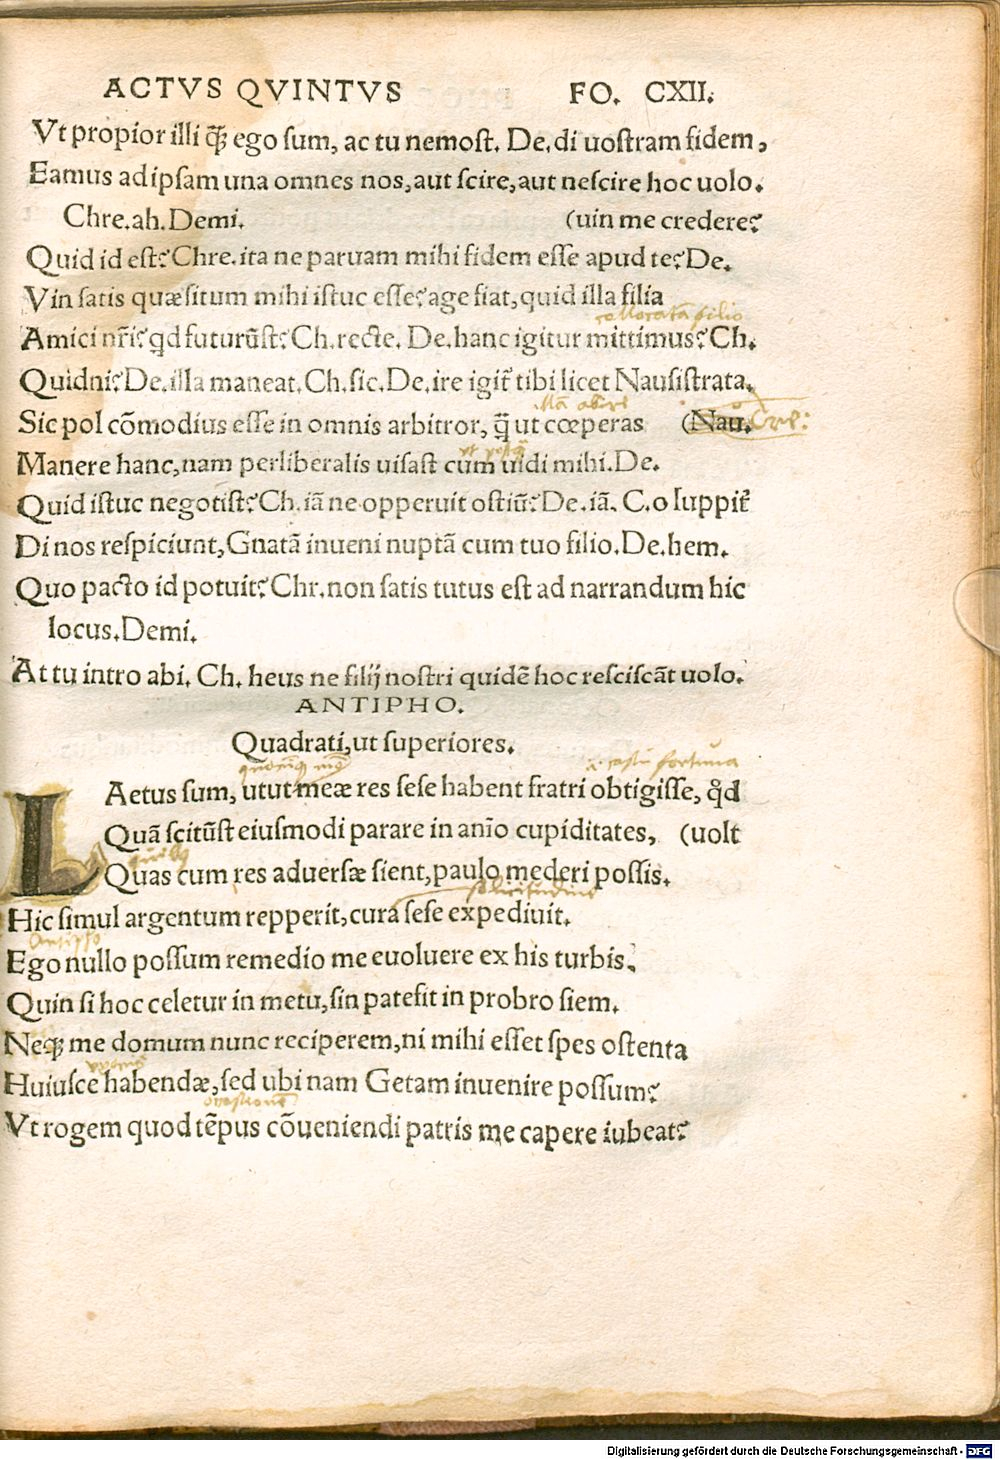 ACTVS QVINTVS FO. CXII.
Vt propior illi q̃ꝫ ego sum, ac tu nemost. De. di uostram fidem,
Eamus ad ipsam una omnes nos, aut scire, aut nescire hoc uolo.
Chre. ah. Demi. (uin me credere?
Quid id est? Chre. ita ne paruam mihi fidem esse apud te? De.
Vin satis quæsitum mihi istuc esse? age fiat, quid illa filia
collocatã filio
Amici nr̃i? qd futurũst? Ch. recte. De. hanc igitur mittimus? Ch.
Quidni? De. illa maneat. Ch. sic. De. ire igit᷑ tibi licet Nausistrata.
Sic pol cõmodius esse in omnis arbitror, q̃ ut cœperas (Nau.
Manere hanc, nam perliberalis uisast cum uidi mihi. De.
Quid istuc negotist? Ch. iã ne opperuit ostiũ? De. iã. C. o Iuppit᷑
Di nos respiciunt, Gnatã inueni nuptã cum tuo filio. De. hem.
Quo pacto id potuit? Chr. non satis tutus est ad narrandum hic
locus. Demi.
At tu intro abi. Ch. heus ne filij nostri quidẽ hoc resciscãt uolo.
ANTIPHO.
Quadrati, ut superiores.
fortuna
LAetus sum, utut meæ res sese habent fratri obtigisse, q̃d
Quã scitũst eiusmodi parare in anio cupiditates, (uolt
Quas cum res aduersæ sient, paulo mederi possis.
solicitudine
Hic simul argentum repperit, cura sese expediuit.
Antipho
Ego nullo possum remedio me euoluere ex his turbis.
Quin si hoc celetur in metu, sin patefit in probro siem.
Neqꝫ me domum nunc reciperem, ni mihi esset spes ostenta
Huiusce habendæ, sed ubi nam Getam inuenire possum?
Vt rogem quod tẽpus cõueniendi patris me capere iubeat?
Digitalisierung gefördert durch die Deutsche Forschungsgemeinschaft - DFG